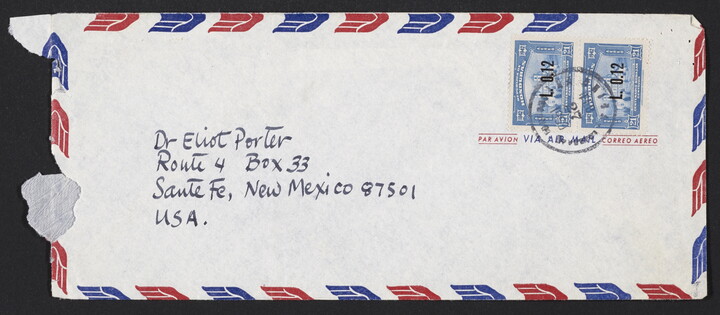 HONDURAS HONDURAS
L. 0.12 L. 0.12
PAR AVION VIA AIR MAIL CORREO AEREO
Dr Eliot Porter
Route 4 Box 33
Santa Fe, New Mexico 87501
USA.